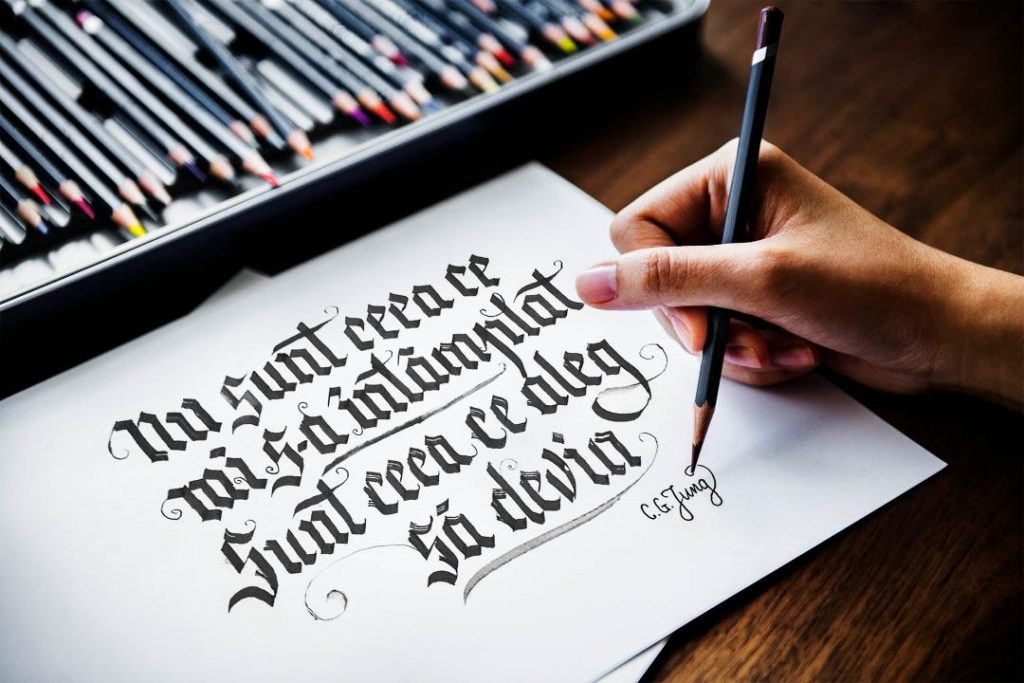 Nu sunt ceea ce
mi s-a întâmplat
Sunt ceea ce aleg
Să devin
C.G. Jung